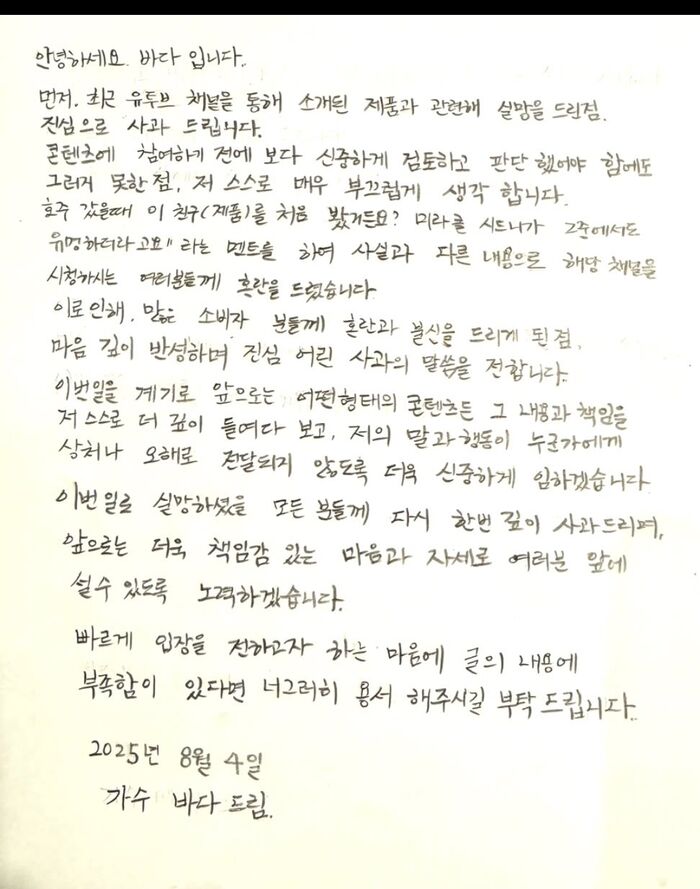 안녕하세요. 바다 입니다.
먼저. 최근 유투브 채널을 통해 소개된 제품과 관련해 실망을 드린점.
진심으로 사과 드립니다.
콘텐츠에 참여하기 전에 보다 신중하게 검토하고 판단 했어야 함에도
그러지 못한 점, 저 스스로 매우 부끄럽게 생각 합니다.
호주 갔을때 이 친구(제품)를 처음 봤거든요? 미라클 시드니가 고준에서도
유명하더라고요" 라는 멘트를 하여 사실과 다른 내용으로 해당 채널을
시청하시는 여러분들께 혼란을 드렸습니다
이로인해, 많은 소비자 분들께 혼란과 불신을 드리게 된 점,
마음 깊이 반성하며 진심 어린 사과의 말씀을 전합니다.
이번일을 계기로 앞으로는 어떤형태의 콘텐츠든 그 내용과 책임을
저 스스로 더 깊이 들여다 보고, 저의 말과 행동이 누군가에게
상처나 오해로 전달되지 않도록 더욱 신중하게 임하겠습니다
이번일로 실망하셨을 모든 분들께 다시 한번 깊이 사과드리며,
앞으로는 더욱 책임감 있는 마음과 자세로 여러분 앞에
설수 있도록 노력하겠습니다.
빠르게 입장을 전하고자 하는 마음에 글의 내용에
부족함이 있다면 너그러히 용서 해주시길 부탁 드립니다.
2025년 8월 4일
가수 바다 드림.